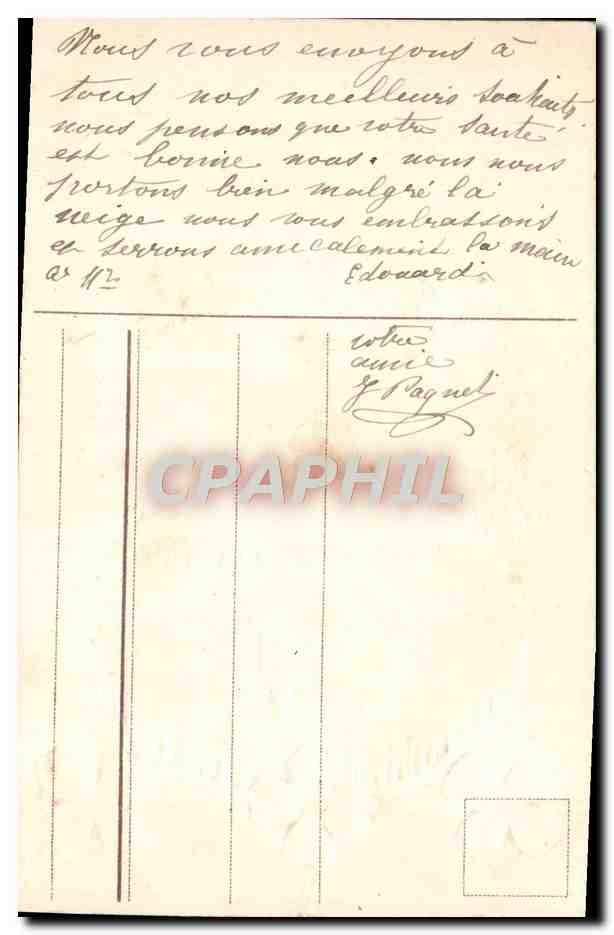 Nous vous envoyons à
tous nos meilleurs souhaits
nous pensons que votre santé
est bonne nous. nous nous
portons bien malgré la
neige nous vous embrassons
et serrons amicalement la main
a Mr Edouard
votre
amie
J Paquet
CPAPHIL